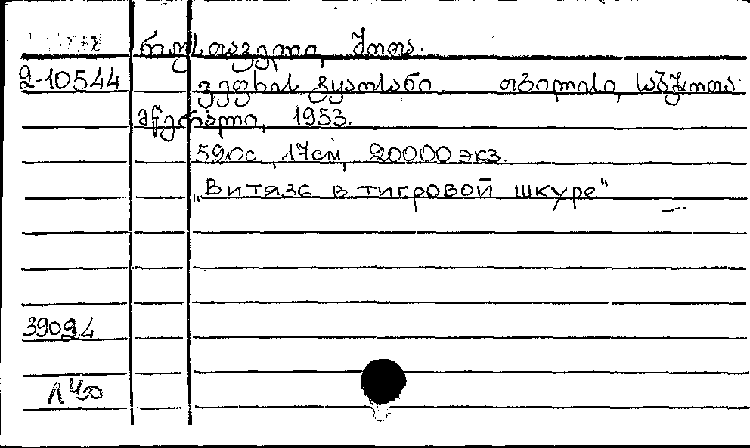 რუსთაველი, შოთა.
2-10544
ვეფხის ტყაოსანი. თბილისი, საბჭოთა
მწერალი, 1953.
590с, 17см, 20000 экз.
„Витязь в тигровой шкуре"
39094